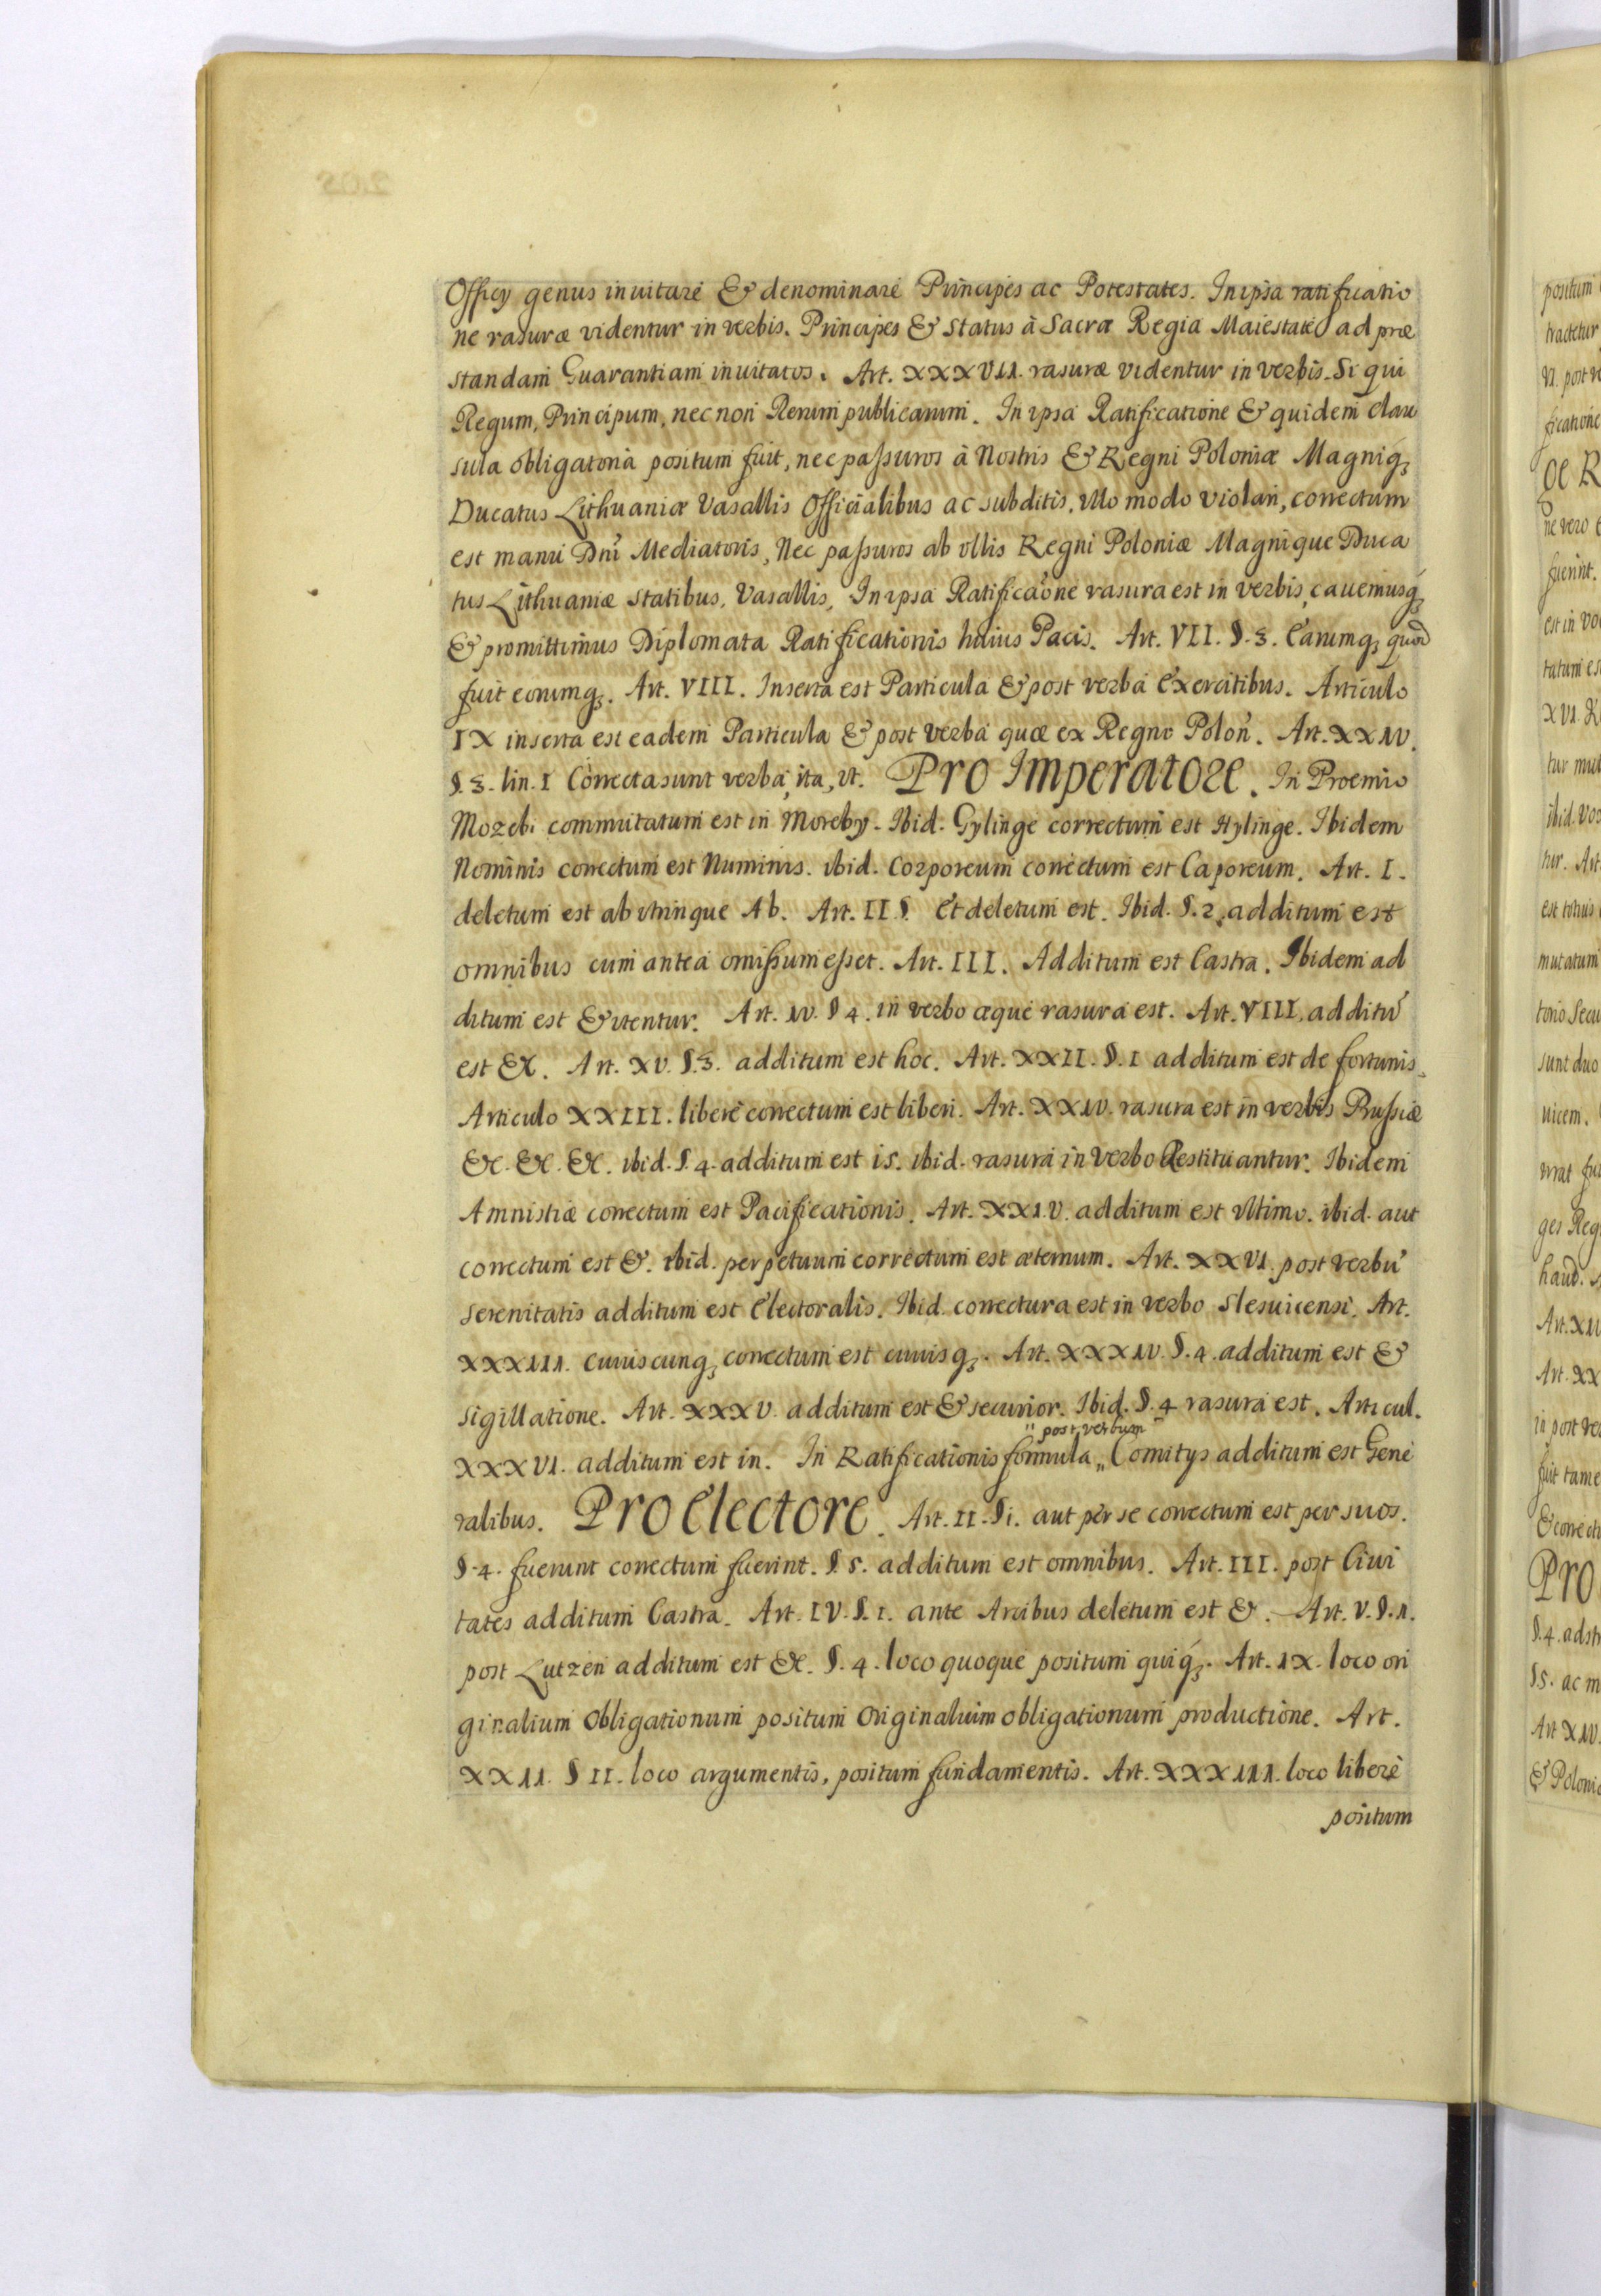 Officij genus inuitare & denominare Principes ac Potestates. In ipsa ratificatio
ne rasuræ videntur in verbis. Principes & Status à Sacra Regia Maiestate ad præ
standam Guarantiam inuitatos. Art. XXXVII. rasuræ videntur in verbis. Si qui
Regum, Principum, nec non Rerum publicarum. In ipsa Ratificatione & quidem Clau
sula obligatoria positum fuit, nec paſsuros à Nostris & Regni Poloniæ Magniq3
Ducatus Lithuaniæ Vasallis Officialibus ac subditis, vllo modo violari, correctum
est manu Dni Mediatoris, Nec paſsuros ab vllis Regni Poloniæ Magnique Duca
tus Lithuaniæ statibus, Vasallis, In ipsa Ratificaõne rasura est in verbis, cauemusq3
& promittimus Diplomata Ratificationis huius Pacis. Art. VII. §. 3. Earumq3 quod
fuit eorumq3. Art. VIII. Inserta est Particula & post verba Exercitibus. Articulo
IX inserta est eadem Particula & post verba quæ ex Regno Polon. Art. XXIV.
§. 3. lin. I Correcta sunt verba, ita, vt. Pro Imperatore. In Proemio
Mozebi commutatum est in Moreby. Ibid. Gylinge correctum est Hylinge. Ibidem
Nominis correctum est Numinis. ibid. Corporeum correctum est Caporeum. Art. I.
deletum est ab vtrinque Ab. Art. II §. Et deletum est. Ibid. §. 2. additum est
omnibus cum antea omiſsum eſset. Art. III. Additum est Castra. Ibidem ad
ditum est & vtentur. Art. IV. § 4. in verbo æque rasura est. Art. VIII. additũ
est &c. Art. XV. §. 3. additum est hoc. Art. XXII. §. I additum est de fortunis.
Articulo XXIII. libere correctum est liberi. Art. XXIV. rasura est in verbis Pruſsiæ
&c. &c. &c. ibid. §. 4. additum est is. ibid. rasura in verbo Restituantur. Ibidem
Amnistiæ correctum est Pacificationis. Art. XXIV. additum est vltimo. ibid. aut
correctum est &. ibid. perpetuum correctum est æternum. Art. XXVI. post verbũ
serenitatis additum est Electoralis. Ibid. correctura est in verbo Slesuicensi. Art.
XXXIII. cuiuscunq3 correctum est cuiusq3. Art. XXXIV. §. 4. additum est &
sigillatione. Art. XXXV. additum est & securior. Ibid. §. 4 rasura est. Articul.
" post verbum
XXXVI. additum est in. In Ratificationis formula „ Comitys additum est Gene
ralibus. Pro Electore. Art. II. §i. aut per se correctum est per suos.
§. 4. fuerunt correctum fuerint. §. 5. additum est omnibus. Art. III. post Ciui
tates additum Castra. Art. IV. §. I. ante Arcibus deletum est &. Art. V. §. 1.
post Lutzen additum est &c. §. 4. loco quoque positum quiq3. Art. IX. loco ori
ginalium Obligationum positum Originalium obligationum productione. Art.
XXII. § II. loco argumentis, positum fundamentis. Art. XXXIII. loco libere
positum